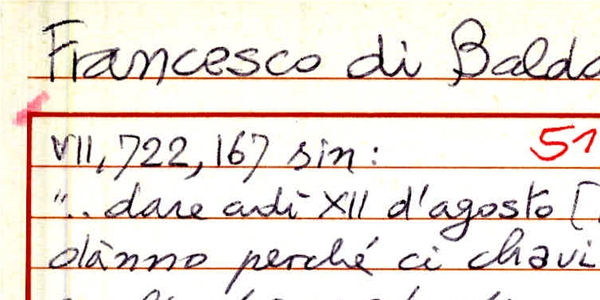 Francesco di Balda
VII, 722, 167 sin: 51
".. dare adì XII d'agosto [.
dànno perché ci chavi